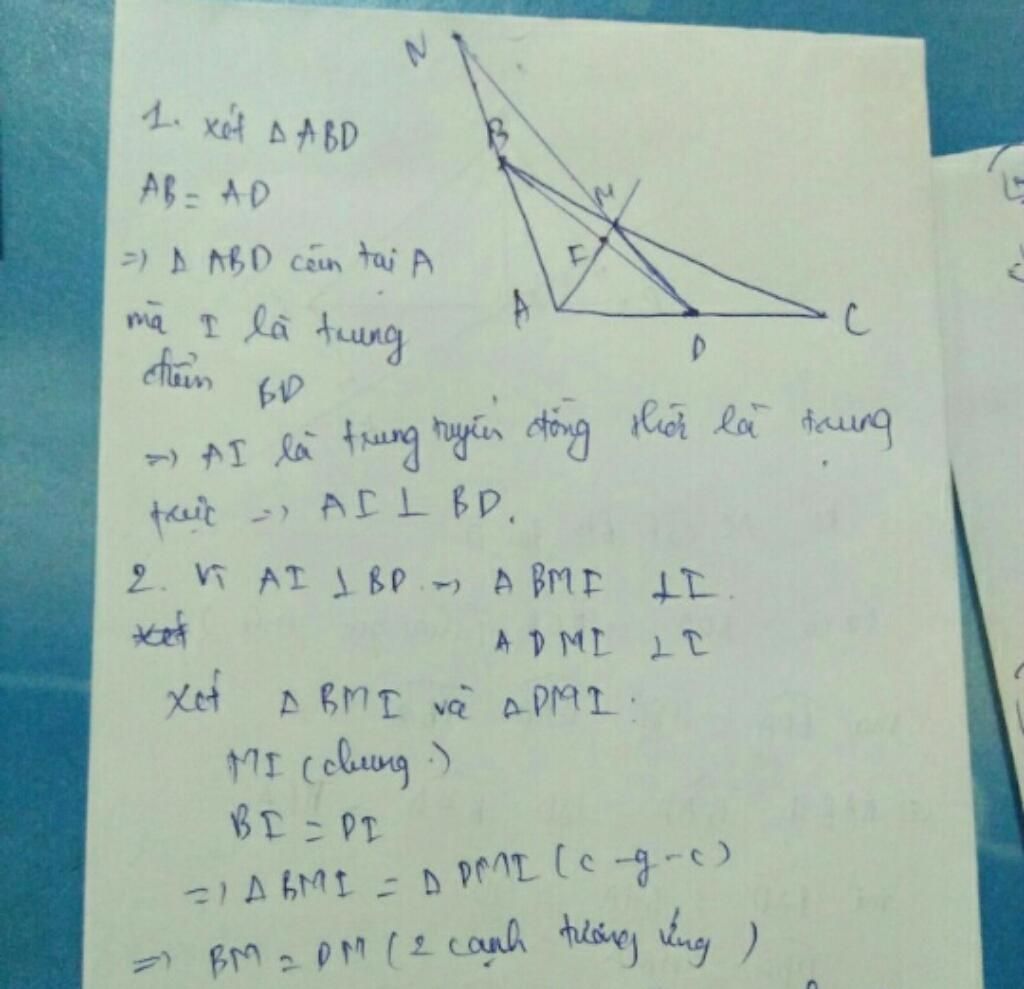 N
B
M
I
A
D
C
1. xét Δ ABD
AB = AD
=) Δ ABD cân tại A
mà I là trung
điểm BD
=) AI là trung tuyến đồng thời là trung
trực =) AI ⊥ BD.
2. Vì AI ⊥ BD. =) Δ BMI ⊥ I.
xét Δ DMI ⊥ I
Xét Δ BMI và Δ DMI :
MI (chung.)
BI = DI
=) Δ BMI = Δ DMI (c-g-c)
=) BM = DM (2 cạnh tương ứng)